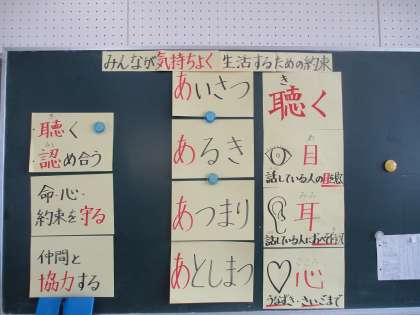 みんなが気持ちよく生活するための約束
き
聴く
みと
認め合う
命・心・
約束を守る
仲間と
協力する
あいさつ
あるき
あつまり
あとしまつ
き
聴く
め
目
話している人の目を
みみ
耳
話している人に
こころ
心
うなずき・さいごまで